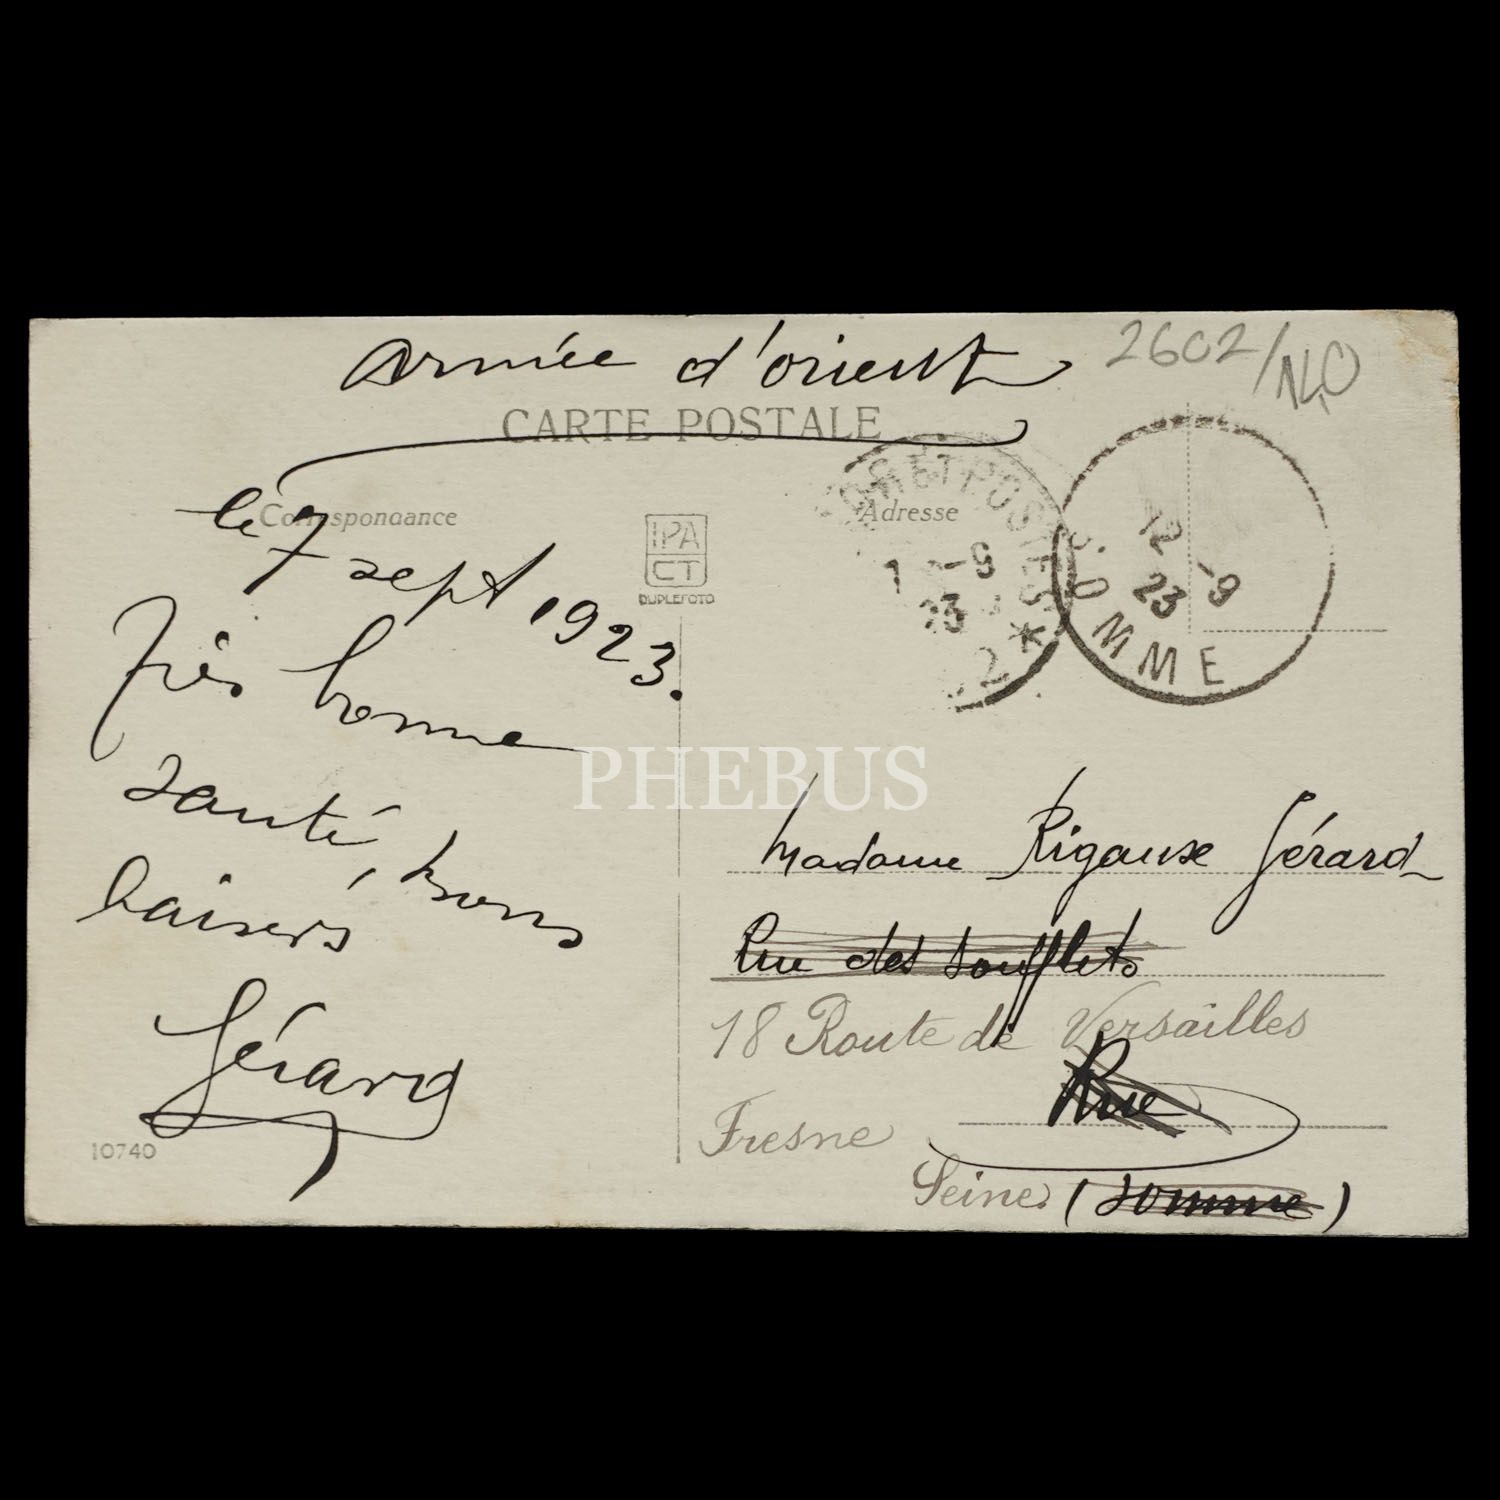 armée d'orient
2602/NO
CARTE POSTALE
Correspondance
Adresse
le 7 sept 1923.
Très bonne
santé, bons
baisers
Gérard
10740
IPA
CT
DUPLEFOTO
ET POSTES
-9
23
2 *
12 -9
23
SOMME
PHEBUS
Madame Rigaux Gérard
Rue des soufflets
18 Route de Versailles
Rue
Fresne
Seine. (somme)